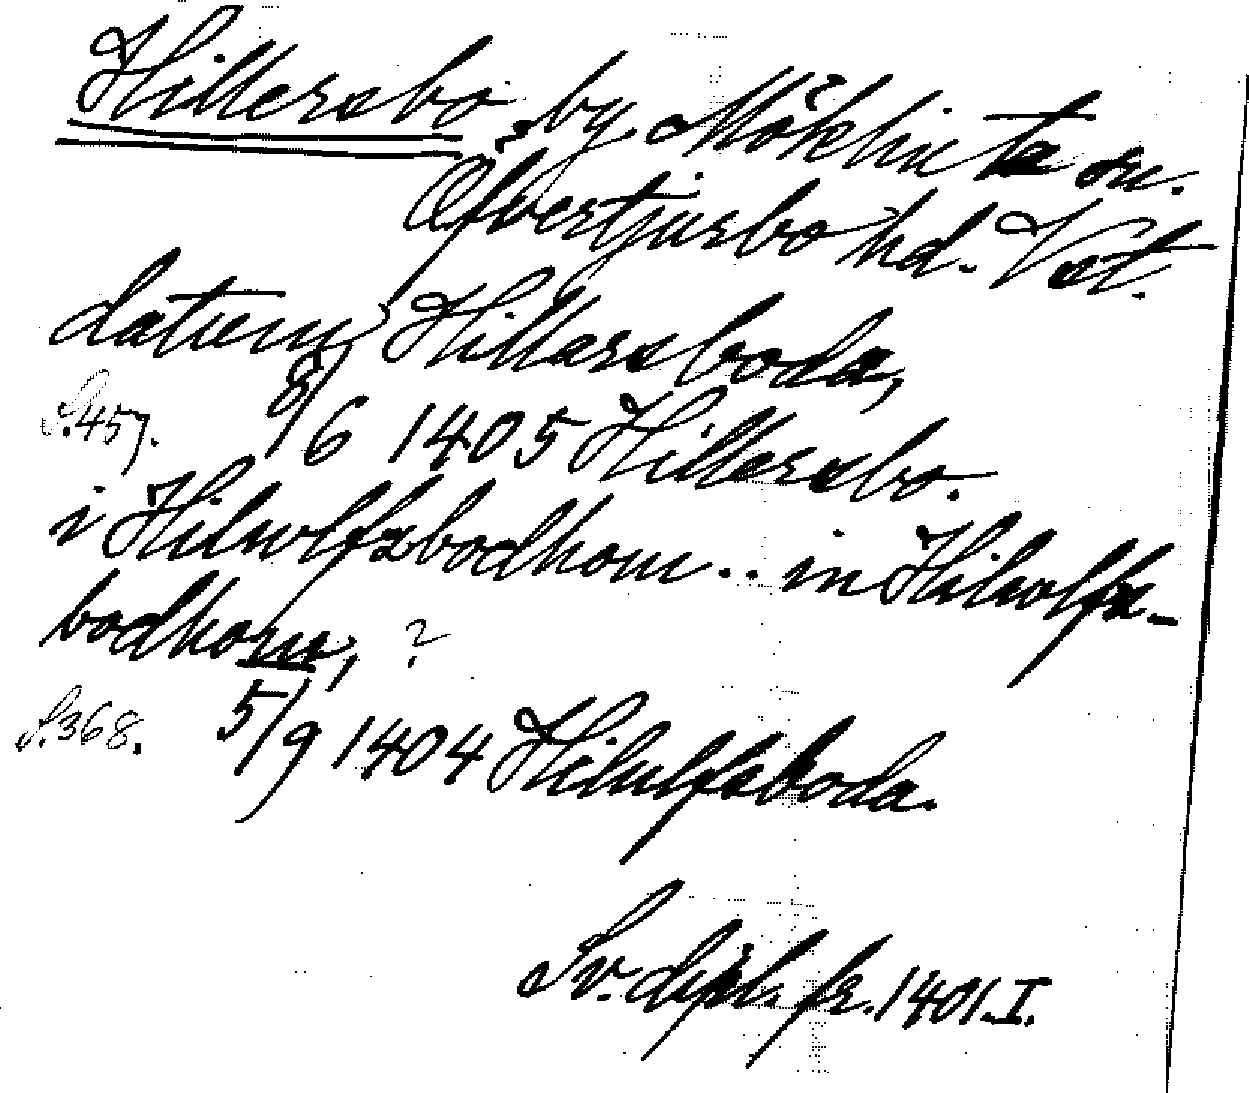 Hillersbo by Möklinta sn.
Øfvertjurbo hd. Vstm.
datum Hillarsboda,
S.457. 8/6 1405 Hillersbo.
i Hilwlfsbodhom .. in Hilwlfs-
bodhom, ?
S.368. 5/9 1404 Hilulfsboda.
Sv. dipl. fr. 1401. I.